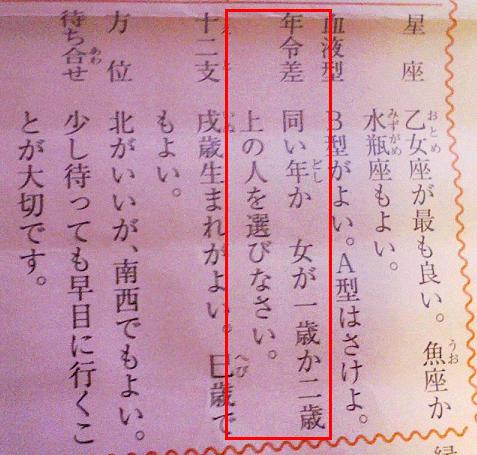 星座 乙女座が最も良い。魚座か
水瓶座もよい。
血液型 B型がよい。A型はさけよ。
年令差 同い年か 女が一歳か二歳
上の人を選びなさい。
十二支 戌歳生まれがよい。巳歳で
もよい。
方位 北がいいが、南西でもよい。
待ち合せ 少し待っても早目に行くこ
とが大切です。